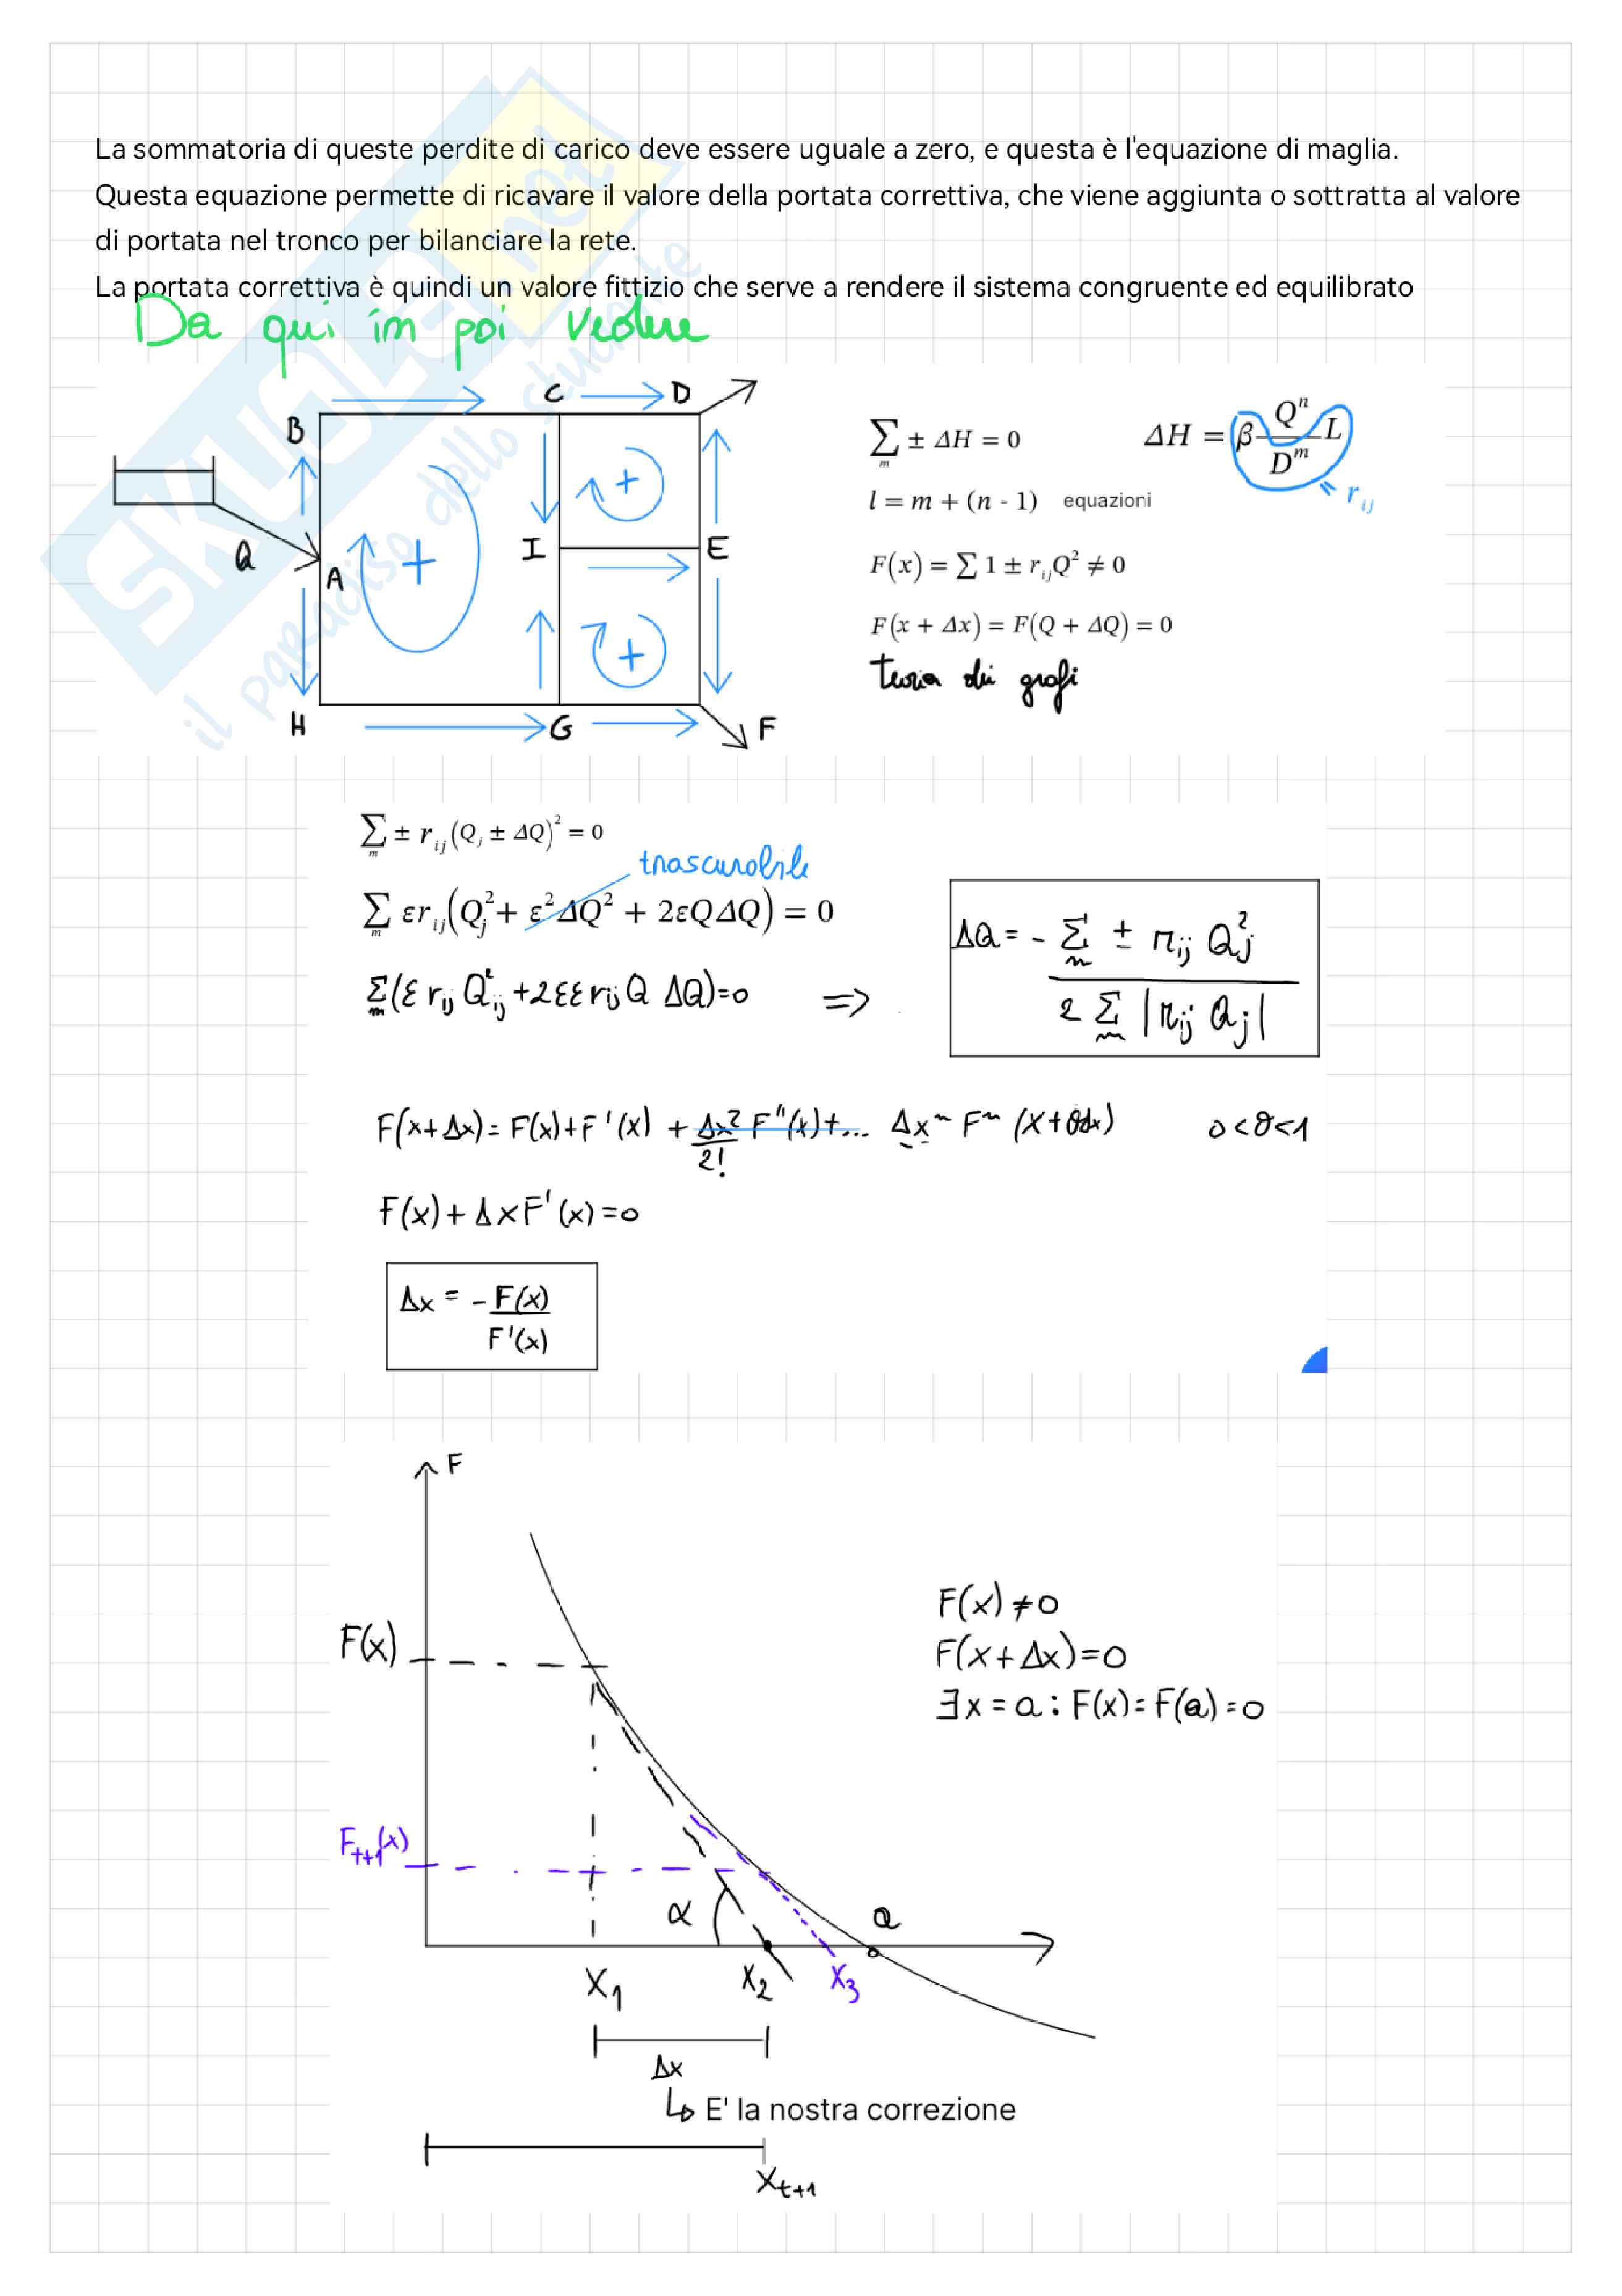 La sommatoria di queste perdite di carico deve essere uguale a zero, e questa è l'equazione di maglia.
Questa equazione permette di ricavare il valore della portata correttiva, che viene aggiunta o sottratta al valore
di portata nel tronco per bilanciare la rete.
La portata correttiva è quindi un valore fittizio che serve a rendere il sistema congruente ed equilibrato
Da qui in poi vedere
SKUOLA.net
il paradiso dello studente
B C D
Q A I E
H G F
+ + +
∑ₘ ± ΔH = 0
ΔH = β Qⁿ/Dᵐ L
= r_ij
l = m + (n - 1) equazioni
F(x) = ∑ 1 ± r_ij Q² ≠ 0
F(x + Δx) = F(Q + ΔQ) = 0
teoria dei grafi
∑ₘ ± r_ij (Q_j ± ΔQ)² = 0
trascurabile
∑ₘ εr_ij (Q_j² + ε²ΔQ² + 2εQΔQ) = 0
∑ₘ (ε r_ij Q²_ij + 2εε r_ij Q ΔQ) = 0 =>
ΔQ = - ∑ₙ ± r_ij Q²_j / 2 ∑ₘ |r_ij Q_j|
F(x+Δx) = F(x) + F'(x) + Δx²/2! F''(x) + ... Δxⁿ Fⁿ (x+θdx) 0<θ<1
F(x) + Δx F'(x) = 0
Δx = - F(x)/F'(x)
F
F(x)
F(x) ≠ 0
F(x+Δx) = 0
∃ x = a : F(x) = F(a) = 0
F_t+1(x)
α a
x₁ x₂ x₃
Δx
↳ E' la nostra correzione
x_t+1